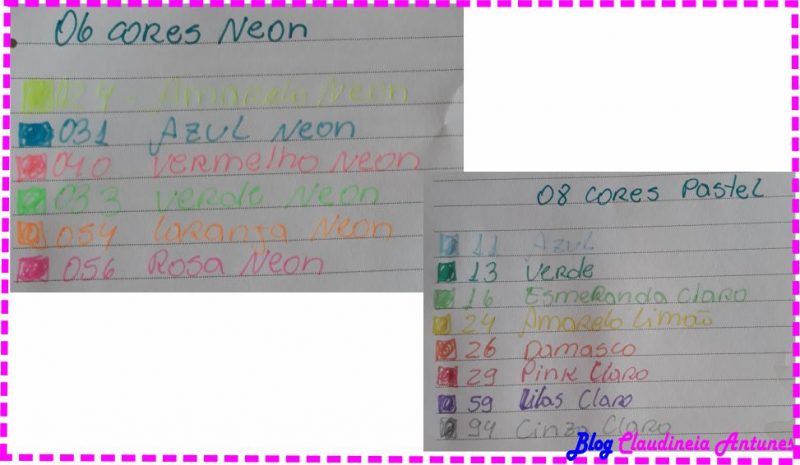 06 cores Neon
024 - Amarelo Neon
031 Azul Neon
040 vermelho Neon
033 verde Neon
054 Laranja Neon
056 Rosa Neon
08 cores Pastel
11 Azul
13 verde
16 Esmeranda Claro
24 Amarelo Limão
26 Damasco
29 Pink Claro
59 Lilas Claro
94 Cinza Claro
Blog Claudineia Antunes